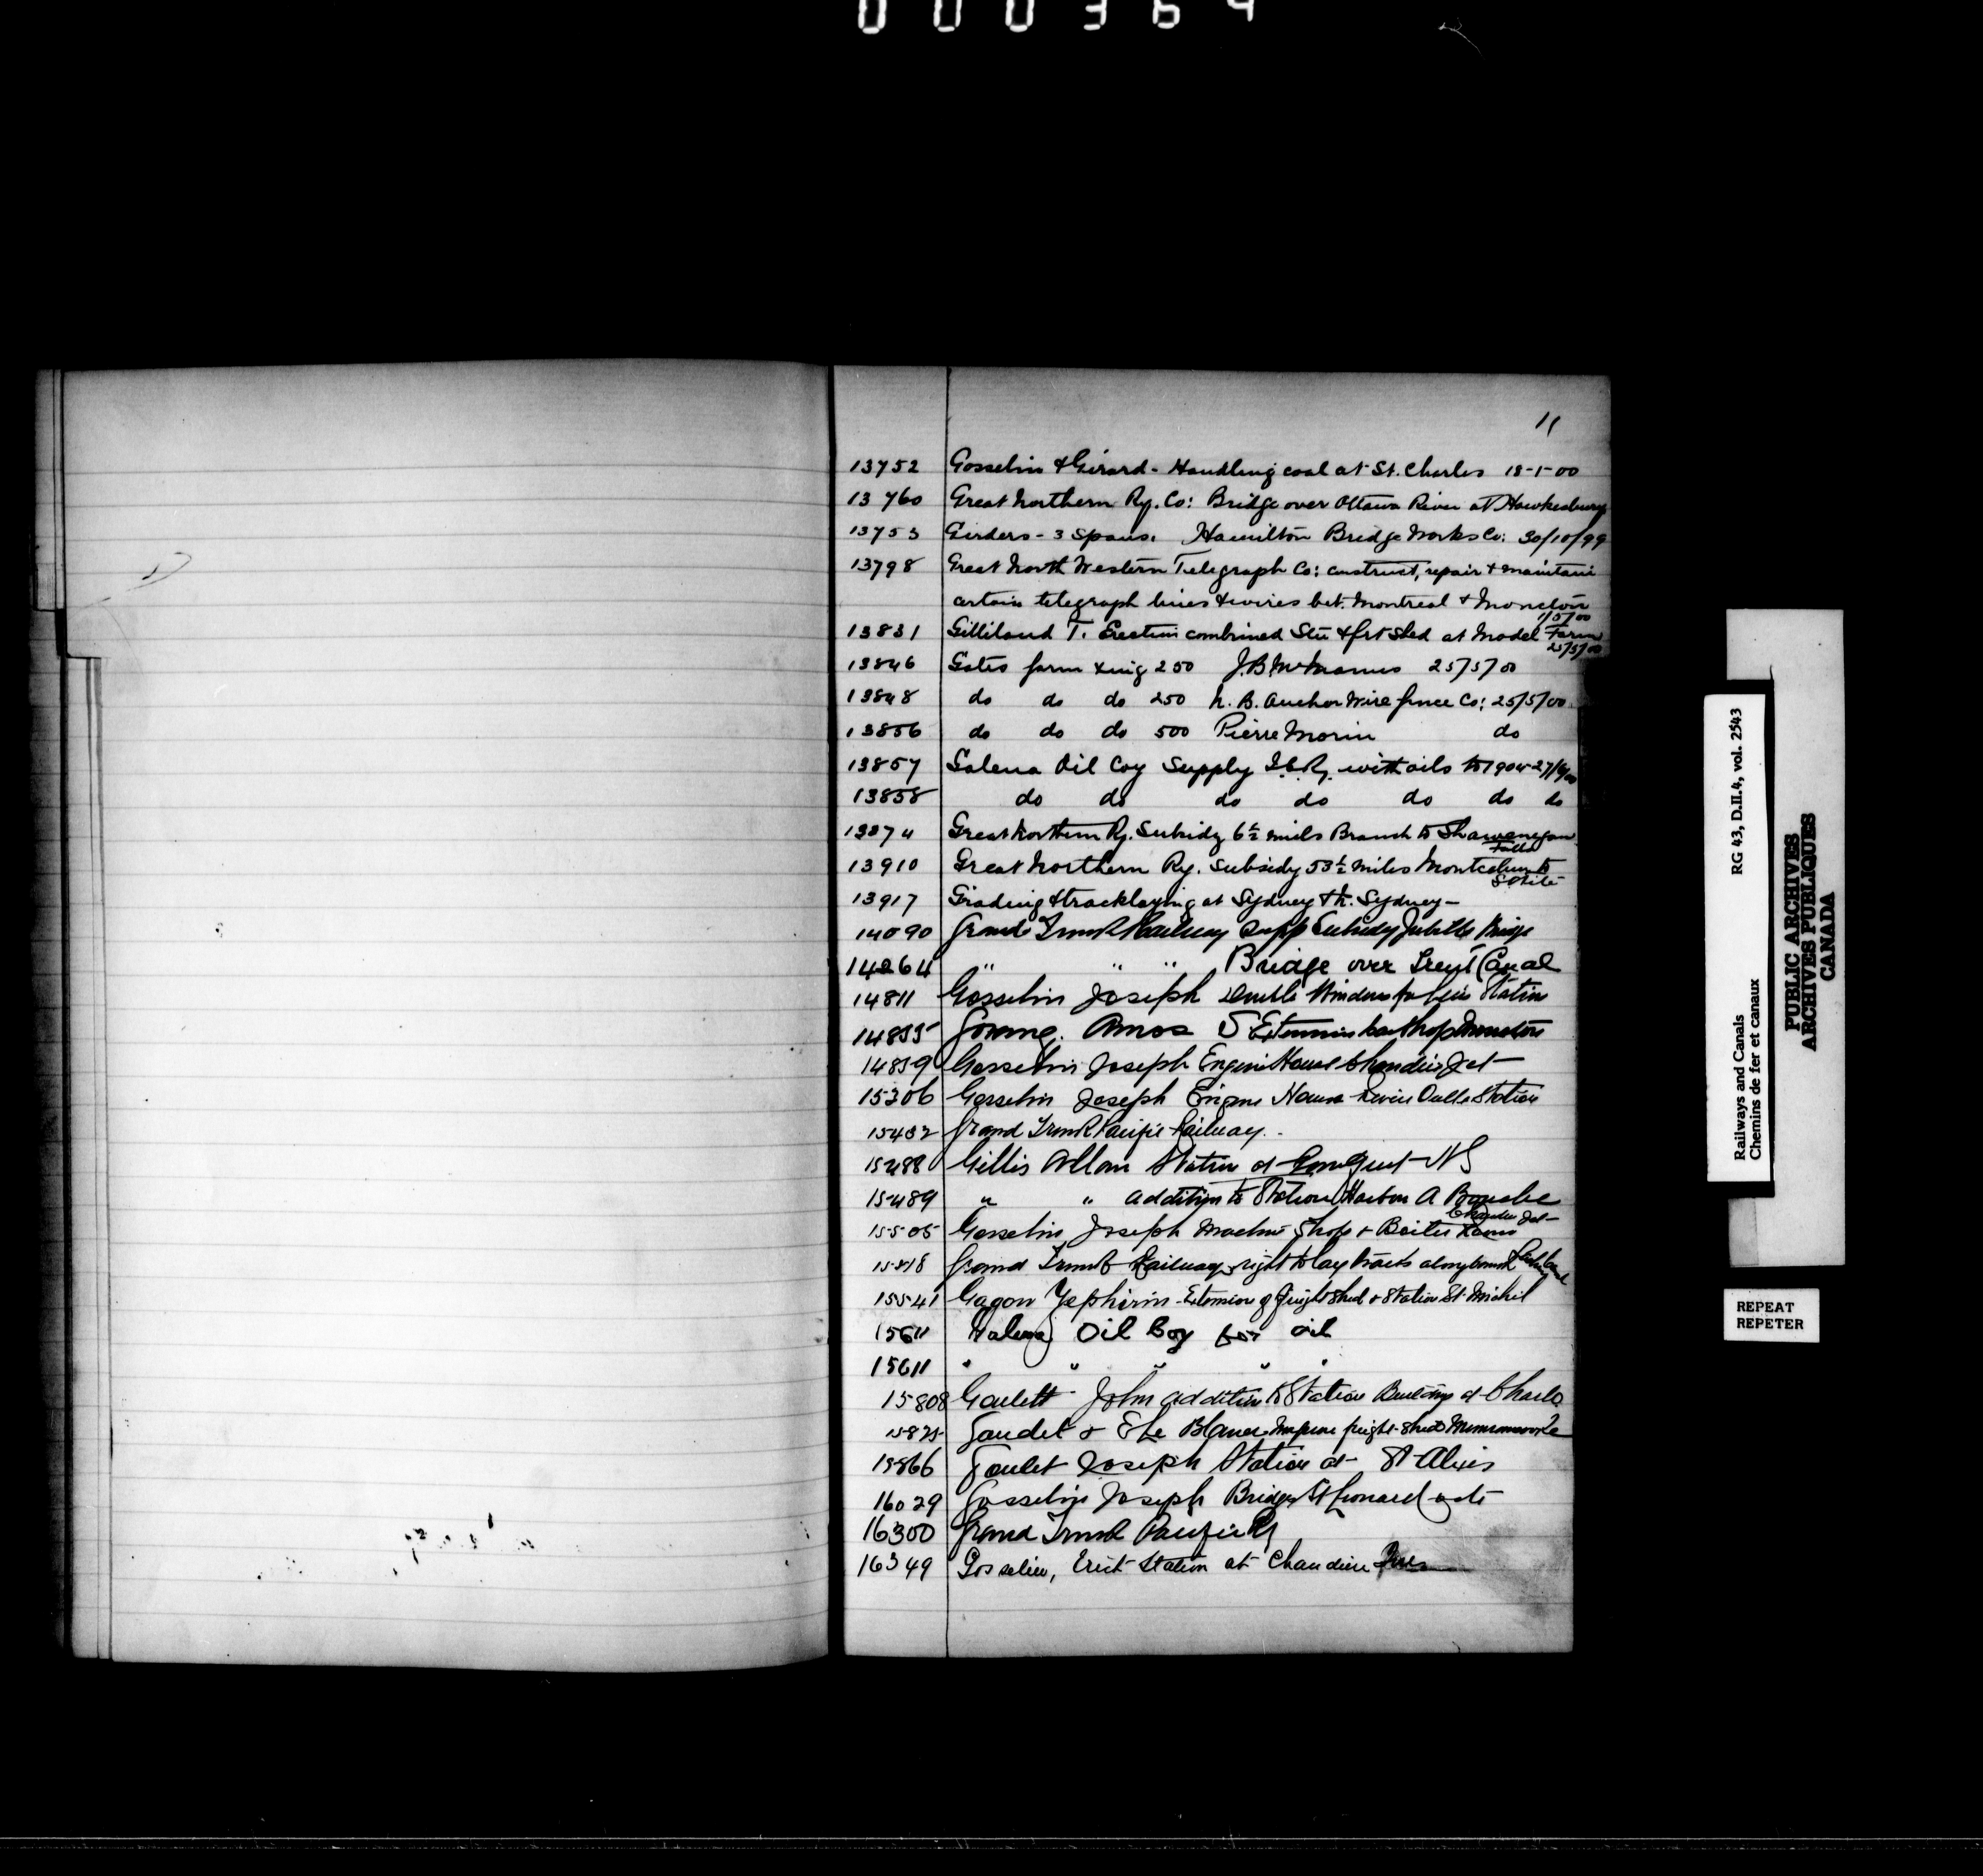 000369
11
13752 Gosselin & Girard - Handling coal at St. Charles 18-1-00
13760 Great Northern Ry. Co: Bridge over Ottawa River at Hawkesbury
13753 Girders - 3 Spans. Hamilton Bridge Works Co: 30/10/99
13798 Great North Western Telegraph Co: construct, repair & maintain
certain telegraph lines & wires bet. Montreal & Moncton
1/5/00
13831 Gilliland T. Erection combined Stn & frt shed at Model Farm
25/5/00
13846 Gates farm xing 250 J.B. McManus 25/5/00
13848 do do do 250 N.B. Anchor Wire fence Co: 25/5/00
13856 do do do 500 Pierre Morin do
13857 Galena Oil Coy Supply I.C.Ry. with oils to 1904
13858 do do do do do do do
13874 Great Northern Ry. Subsidy 6½ miles Branch to Shawenegan
Falls
13910 Great Northern Ry. Subsidy 53½ miles Montcalm to
13917 Grading & tracklaying at Sydney & N. Sydney -
14090 Grand Trunk Railway Supp Subsidy Jubilee Bridge
14264 " " " Bridge over Trent Canal
14811 Gosselin Joseph Double Windows Station
14835 Amos Extension Moncton
14839 Gosselin Joseph Engine House Chaudiere Jct
15306 Gosselin Joseph Engine House Riviere Ouelle Station
15432 Grand Trunk Pacific Railway.
15488 Gillis Allan Station at NS
15489 " " addition to Station Harbor A Bouche
Chaudiere Jct -
15505 Gosselin Joseph Machine Shop & Boiler House
15518 Grand Trunk Railway right to lay tracks along
15541 Gagon Zephirin - Extension of freight shed & Station St. Michel
15611 Galena Oil Coy for oil
15611 " " " " "
15808 John addition to Station Building at Charlo
Gaudet & E Le Blanc freight shed
15866 Goulet Joseph Station at St Alexis
16029 Gosselin Joseph Bridge St Leonard
16300 Grand Trunk Pacific Ry
16349 Gosselin, Erect Station at Chaudiere
RG 43, D.II.4, vol. 2543
Railways and Canals
Chemins de fer et canaux
PUBLIC ARCHIVES
ARCHIVES PUBLIQUES
CANADA
REPEAT
REPETER